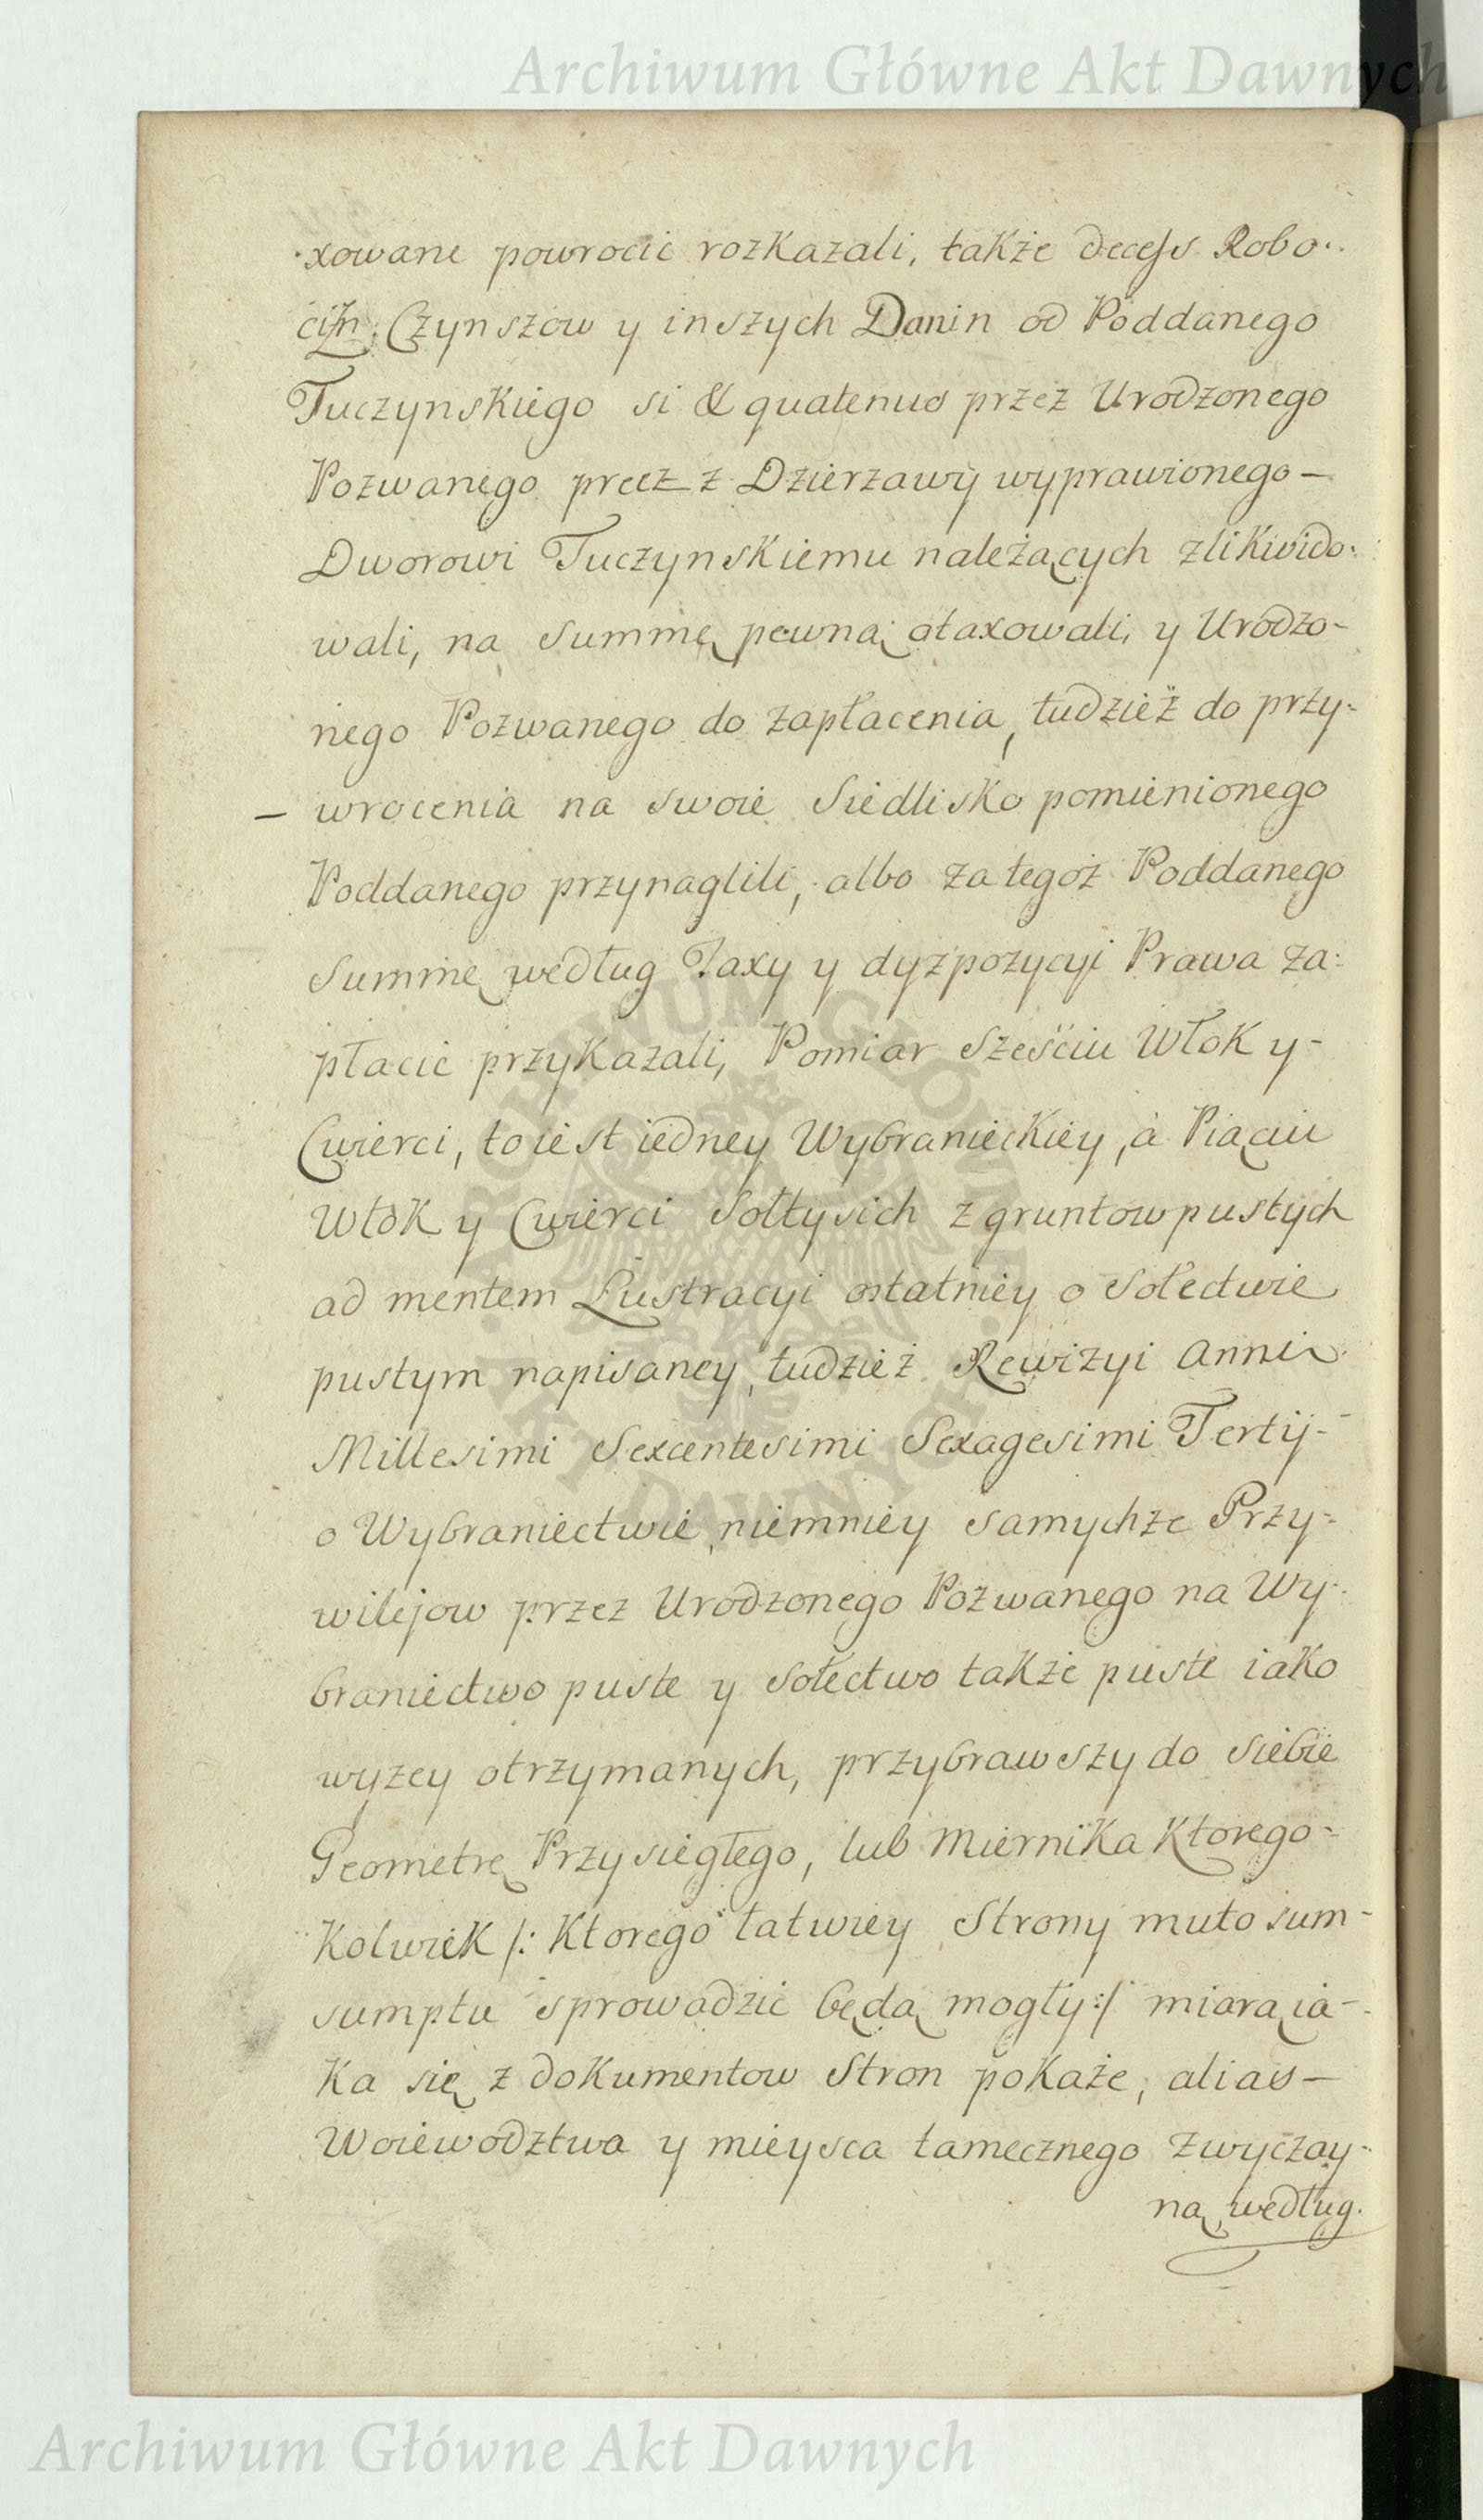 Archiwum Główne Akt Dawnych
xowane powrocic rozKazali, także decess Robo-
cizn, Czynszow y inszych Danin od Poddanego
Tuczynskiego si & quatenus przez Urodzonego
Pozwanego precz z Dzierzawy wyprawionego –
Dworowi Tuczynskiemu należących zlikwido-
wali, na Summę pewną otaxowali, y Urodzo-
nego Pozwanego do zapłacenia, tudzież do przy-
– wrocenia na swoie Siedlisko pomienionego
Poddanego przynaglili, albo za tegoż Poddanego
Summę według Taxy y dyzpozycyi Prawa za-
płacic przykazali, Pomiar Sześciu Włok y –
Cwierci, to iest iedney Wybranieckiey, à Piąciu
Włok y Cwierci Sołtysich z gruntow pustych
ad mentem Lustracyi ostatniey o Sołectwie
pustym napisaney, tudzież Rewizyi Anni
Millesimi Sexcentesimi Sexagesimi Tertij –
o Wybraniectwie, niemniey samychże Przy-
wilejow przez Urodzonego Pozwanego na Wy-
braniectwo puste y Sołectwo także puste iako
wyzey otrzymanych, przybrawszy do siebie
Geometrę Przysięgłego, lub Miernika Ktorego-
Kolwiek /: Ktorego łatwiey Strony muto sum-
sumptu sprowadzic będą mogły :/ miarą ia-
Ka się z dokumentow Stron pokaże, alias –
Woiewodztwa y mieysca tamecznego zwyczay-
ną według.
Archiwum Główne Akt Dawnych